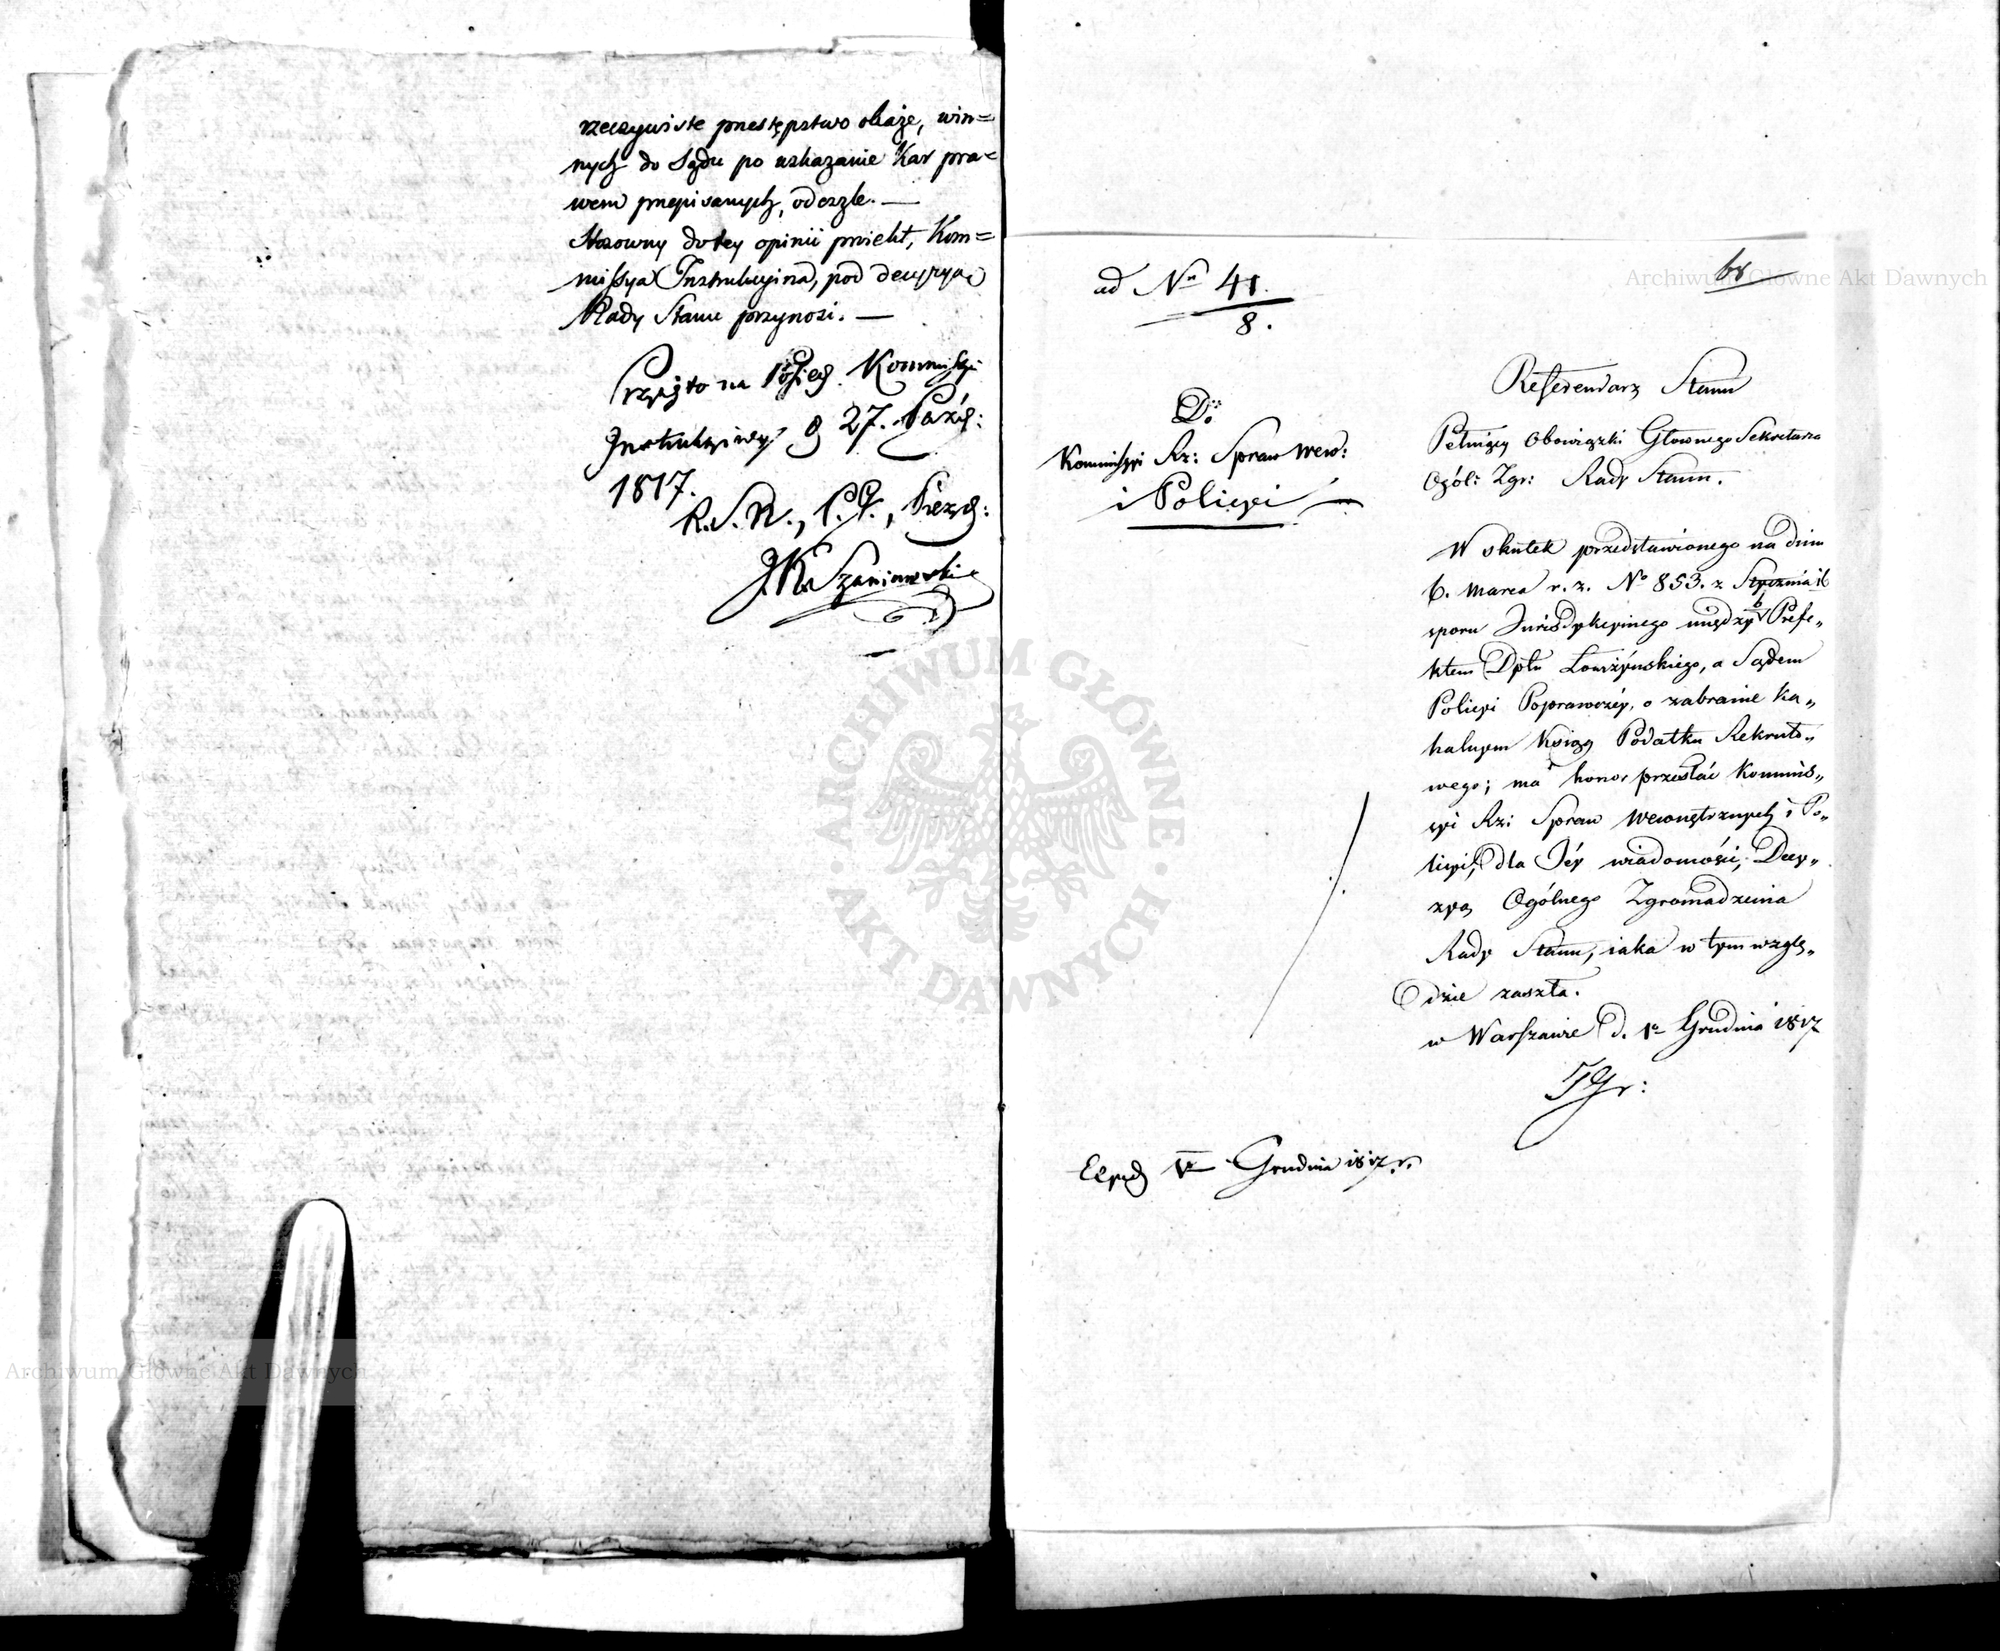 rzeczywiste przestępstwo okaże, win=
nych do Sądu po wskazanie Kar pra=
wem przepisanych, odeszle. —
Stosowny do tey opinii proiekt, Kom=
missya Instrukcyina, pod decyzyą
Rady Stanu przynosi. —
Przyięto na Posied. Kommissyi
Instrukcyiney d 27. Paźd:
1817.
R. S. N.,
J. K. Szaniawski
ad Nr 41.
8.
68
Do
Kommissyi Rz: Spraw Wew:
i Policyi
Referendarz Stanu
Pełniący Obowiązki Głownego Sekretarza
Ogól: Zgr: Rady Stanu.
W skutek przedstawionego na dniu
6. Marca r. z. No 853. z Stycznia
sporu Jurisdykcyinego między Prefe„
ktem Dptu Łomżyńskiego, a Sądem
Policyi Poprawczéy, o zabranie Ka„
halnym Xsiąg Podatku Rekruto„
wego; ma honor przesłać Kommis„
syi Rz: Spraw Wewnętrznych i Po„
licyi, dla Jéy wiadomości, Decy„
zyą Ogólnego Zgromadzenia
Rady Stanu, iaka w tym wzglę„
dzie zaszła.
w Warszawie d. 1o Grudnia 1817
Exped 1o Grudnia 1817. r.
ARCHIWUM GŁÓWNE · AKT DAWNYCH ·
Archiwum Główne Akt Dawnych
Archiwum Główne Akt Dawnych